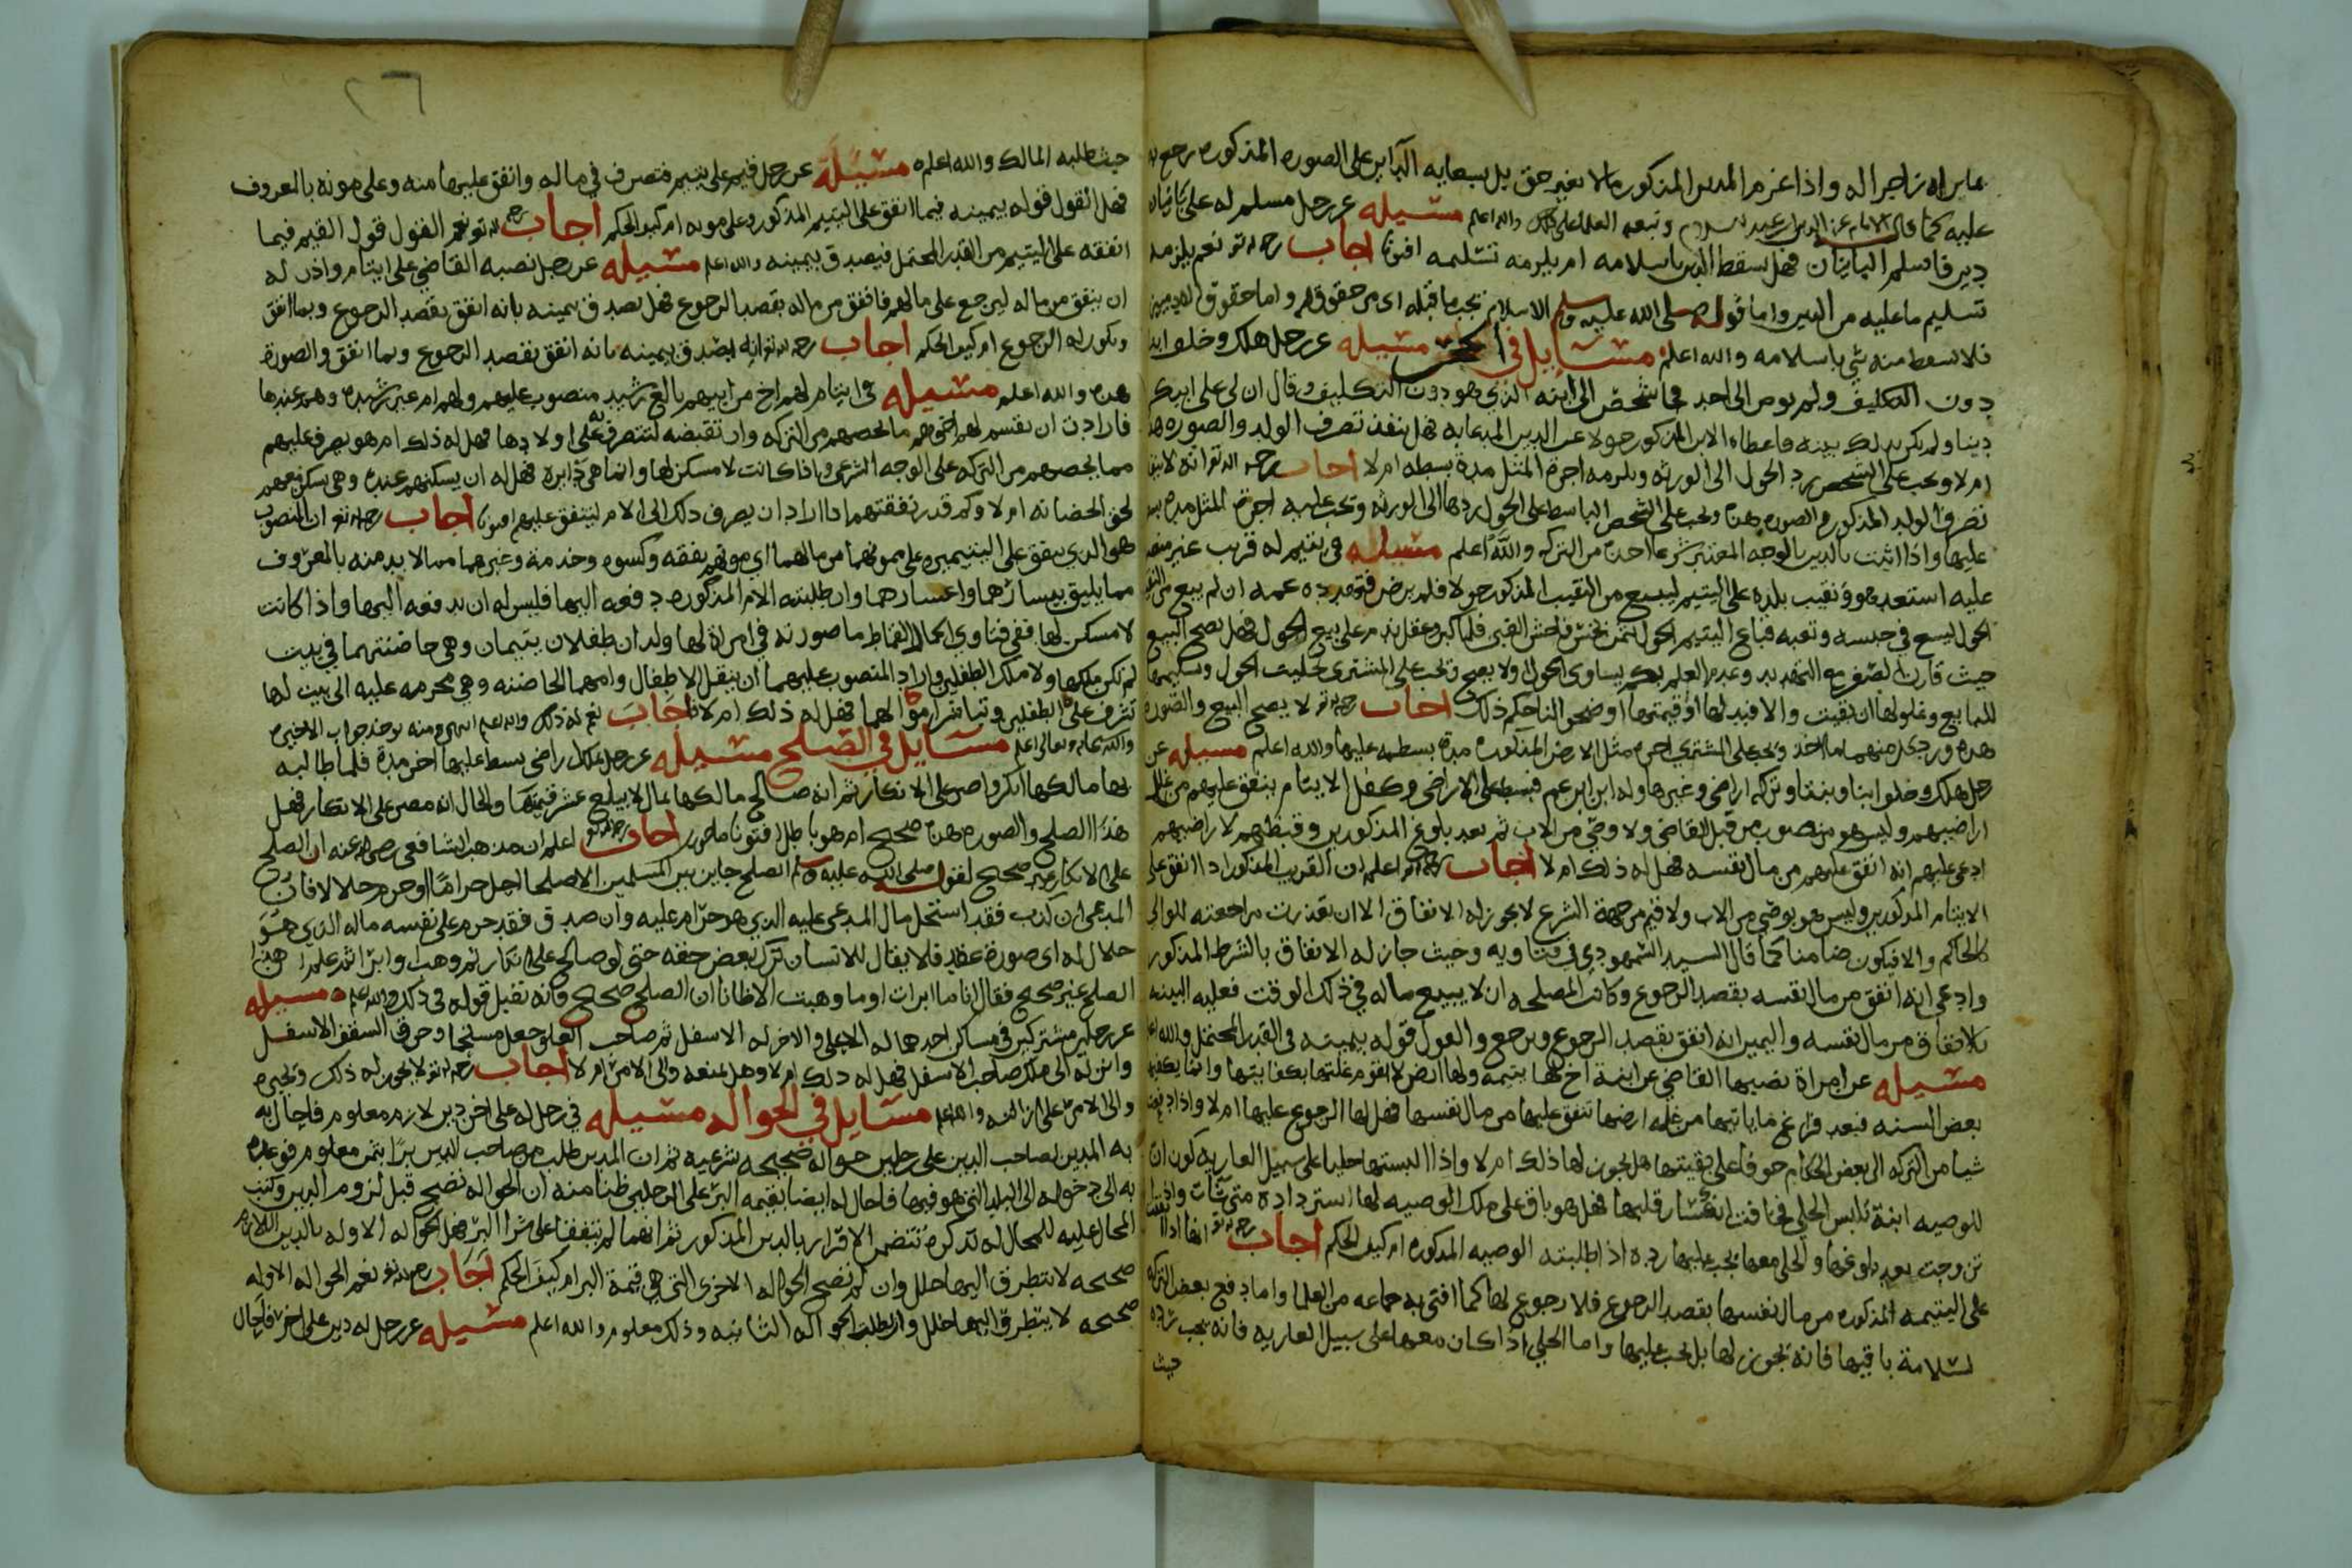 عليه كما قال الامام عز الدين بن عبد السلام وتبعه العلما على ذلك والله اعلم مسيله عن رجل مسلم له على
دين فاسلم فهل يسقط الدين باسلامه ام يلزمه تسليمه افتونا اجاب رحمه الله تع نعم يلزمه
تسليم ما عليه من الدين واما قوله صلى الله عليه وسلم الاسلام يجب ما قبله اي من حقوق الله واما حقوق
فلا يسقط منه شي باسلامه والله اعلم مسايل في الحجر مسيله عن رجل هلك وخلف
دون التكليف ولم يوص الى احد فجا شخص الى ابنه الذي هو دون التكليف وقال ان لي على ابيك
دينا ولم يكن بذلك بينه فاعطاه الابن المذكور حولا عن الدين المدعا به فهل ينفذ تصرف الولد والصوره هذه
ام لا ويجب على الشخص رد الحول الى الورثه ويلزمه اجرة المثل مدة بسطه ام لا اجاب رحمه الله تع انه لا ينفذ
تصرف الولد المذكور والصوره هذه ويجب على الشخص الباسط على الحول ردها الى الورثه وتجب عليه اجرة المثل مدة
عليها واذا اثبت بالدين بالوجه المعتبر شرعا اخذه من التركه والله اعلم مسيله في يتيم له قريب غير
عليه استعد هو ونقيب بلده على اليتيم ليبيع من النقيب المذكور حولا فلم يرض فتهدده عمه ان لم يبيع من
الحول ليسع في حبسه وتعبه فباع اليتيم الحول بثمن بخس فاحش الغبن فلما كبر وعقل ندم على بيع الحول فهل يصح البيع
حيث قارن الصغر مع التهديد وعدم العلم بكم يساوي الحول او لا يصح ويجب على المشتري تخليت الحول وتسليمها
للبايع وغلولها ان بقيت والا فبدلها او قيمتها اوضحوا لنا حكم ذلك اجاب رحمه الله تع لا يصح البيع والصوره
هذه ورد كل منهما ما اخذ ويجب على المشتري اجره مثل الارض المذكوره مدة بسطه عليها والله اعلم مسيله عن
رجل هلك وخلف ابنا وبنتا وتركه اراضي وغيرها وله ابن ابن عم فبسط على الاراضي وكفل الايتام ينفق عليهم من غلل
اراضيهم وليس هو منصوب من قبل القاضي ولا وصي من الاب ثم بعد بلوغ المذكورين وقبضهم لاراضيهم
ادعى عليهم انه انفق عليهم من مال نفسه فهل له ذلك ام لا اجاب رحمه الله تع اعلم ان القريب المذكور اذا انفق على
الايتام المذكورين وليس هو بوصي من الاب ولا قيم من جهة الشرع لا يجوز له الانفاق الا ان تعذرت مراجعته للوالي
كالحاكم والا فيكون ضامنا كما قال السيد السمهودي في فتاويه وحيث جاز له الانفاق بالشرط المذكور
وادعى انه انفق من مال نفسه بقصد الرجوع وكانت المصلحه ان لا يبيع ماله في ذلك الوقت فعليه البينه
بالانفاق من مال نفسه واليمين انه انفق بقصد الرجوع ويرجع والقول قوله بيمينه في القدر المحتمل والله اعلم
مسيله عن امراة نصبها القاضي عن ابنة اخ لها يتيمه ولها ارض لا تقوم غلتها بكفايتها وانما يكفيها
بعض السنه فبعد فراغ ما ياتيها من غله ارضها تنفق عليها من مال نفسها فهل لها الرجوع عليها ام لا واذا
شيا من التركه الى بعض الحكام خوفا على بقيتها هل يجوز لها ذلك ام لا واذا البستها حليا على سبيل العاريه كون ان
للوصيه ابنة تلبس الحلي فخافت انكسار قلبها فهل هو باق على ملك الوصيه لها استرداده متى شات
تزوجت بعد بلوغها والحلي معها يجب عليها رده اذا طلبته الوصيه المذكوره ام كيف الحكم اجاب رحمه الله تع انها اذا
على اليتيمه المذكوره من مال نفسها بقصد الرجوع فلا رجوع لها كما افتى به جماعه من العلما واما دفع بعض التركه
لسلامة باقيها فانه يجوز لها بل يجب عليها واما الحلي اذا كان معها على سبيل العاريه فانه يجب رده
حيث
٢٦
حيث طلبه المالك والله اعلم مسيلة عن رجل قيم على يتيم متصرف في ماله وانفق عليها منه وعلى مونه بالمعروف
فهل القول قوله بيمينه فيما انفق على اليتيم المذكور وعلى مونه ام كيف الحكم اجاب رحمه الله تع نعم القول قول القيم فيما
انفقه على اليتيم من القدر المحتمل فيصدق بيمينه والله اعلم مسيله عن رجل نصبه القاضي على ايتام واذن له
ان ينفق من ماله ليرجع على مالهم فانفق من ماله بقصد الرجوع فهل يصدق بيمينه بانه انفق بقصد الرجوع وبما انفق
ويكون له الرجوع ام كيف الحكم اجاب رحمه الله تع انه يصدق بيمينه بانه انفق بقصد الرجوع وبما انفق والصورة
هذه والله اعلم مسيله في ايتام لهم اخ من ابيهم بالغ رشيد منصوب عليهم ولهم ام غير رشيده وهم عندها
فارادت ان يقسم لهم اخوهم ما يخصهم من التركه وان تقبضه لتتصرف به على اولادها فهل له ذلك ام هو يصرف عليهم
مما يخصهم من التركه على الوجه الشرعي واذا كانت لا مسكن لها وانما هي دايره فهل له ان يسكنهم عنده وهي يسكن معهم
لحق الحضانه ام لا وكم قدر نفقتهم اذا اراد ان يصرف ذلك الى الام لينفق عليهم افتونا اجاب رحمه الله تع ان المنصوب
هو الذي ينفق على اليتيمين وعلى ممونهما من مالهما اي مونهم نفقه وكسوه وخدمة وغيرهما مما لا بد منه بالمعروف
مما يليق بيسارهما واعسارهما وان طلبته الام المذكوره دفعه اليها فليس له ان يدفعه اليها واذا كانت
لا مسكن لها ففي فتاوي الجمال القماط ما صورته في امراة لها ولدان طفلان يتيمان وهي حاضنتهما في بيت
لم تكن ملكها ولا ملك الطفلين واراد المنصوب عليهما ان ينقل الاطفال وامهما الحاضنه وهي محرمه عليه الى بيت لها
تشرف على الطفلين وتباشر اموالهما فهل له ذلك ام لا فاجاب نعم له ذلك والله اعلم انتهى ومنه يوخذ جواب الاخيره
والله سبحانه وتعالى اعلم مسايل في الصلح مسيله عن رجل ملك اراضي بسط عليها اخر مدة فلما طالبه
بها مالكها انكر واصر على الانكار ثم انه صالح مالكها بمال لا يبلغ عشر قيمتها والحال انه مصر على الانكار فهل
هذا الصلح والصوره هذه صحيح ام هو باطل افتونا ماجورين اجاب رحمه الله تع اعلم ان مذهب الشافعي رضي الله عنه ان الصلح
على الانكار غير صحيح لقوله صلى الله عليه وسلم الصلح جايز بين المسلمين الا صلحا احل حراما او حرم حلالا فان
المدعي ان كذب فقد استحل مال المدعى عليه الذي هو حرام عليه وان صدق فقد حرم على نفسه ماله الذي هو
حلال له اي صورة عقد فلا يقال للانسان ترك بعض حقه حتى لو صالح على انكار ثم وهب او ابرا ثم علم ان هذا
الصلح غير صحيح فقال انا ما ابرات او ما وهبت الا ظانا ان الصلح صحيح فانه تقبل قوله في ذلك والله اعلم مسيله
عن رجلين مشتركين في مساكن احدهما له الاعلى والاخر له الاسفل ثم صاحب العلو جعل مستحما وخرق السقف الاسفل
وانزله الى ملك صاحب الاسفل فهل له ذلك ام لا وهل يمنعه والي الامر ام لا اجاب رحمه الله تع لا يجوز له ذلك ويجبره
والي الامر على ازالته والله اعلم مسايل في الحواله مسيله في رجل له على اخر دين لازم معلوم فاحال به
به المدين لصاحب الدين على رجلين حواله صحيحه شرعيه ثم ان المدين طلب من صاحب الدين بزا بثمن معلوم فوعده
به الى دخوله الى البلد التي هو فيها فاحال له ايضا بقيمه البز على الرجلين ظنا منه ان الحواله تصح قبل لزوم الدين وكتب
المحال عليه للمحال له تذكره تتضمن الاقرار بالدين المذكور ثم انهما لم يتفقا على شرا البز فهل الحواله الاوله بالدين اللازم
صحيحه لا يتطرق اليها خلل وان لم تصح الحواله الاخرى التي هي قيمة البز ام كيف الحكم اجاب رحمه الله تع نعم الحواله الاوله
صحيحه لا يتطرق اليها خلل وان بطلت الحواله الثانيه وذلك معلوم والله اعلم مسيله عن رجل له دين على اخر فاحال